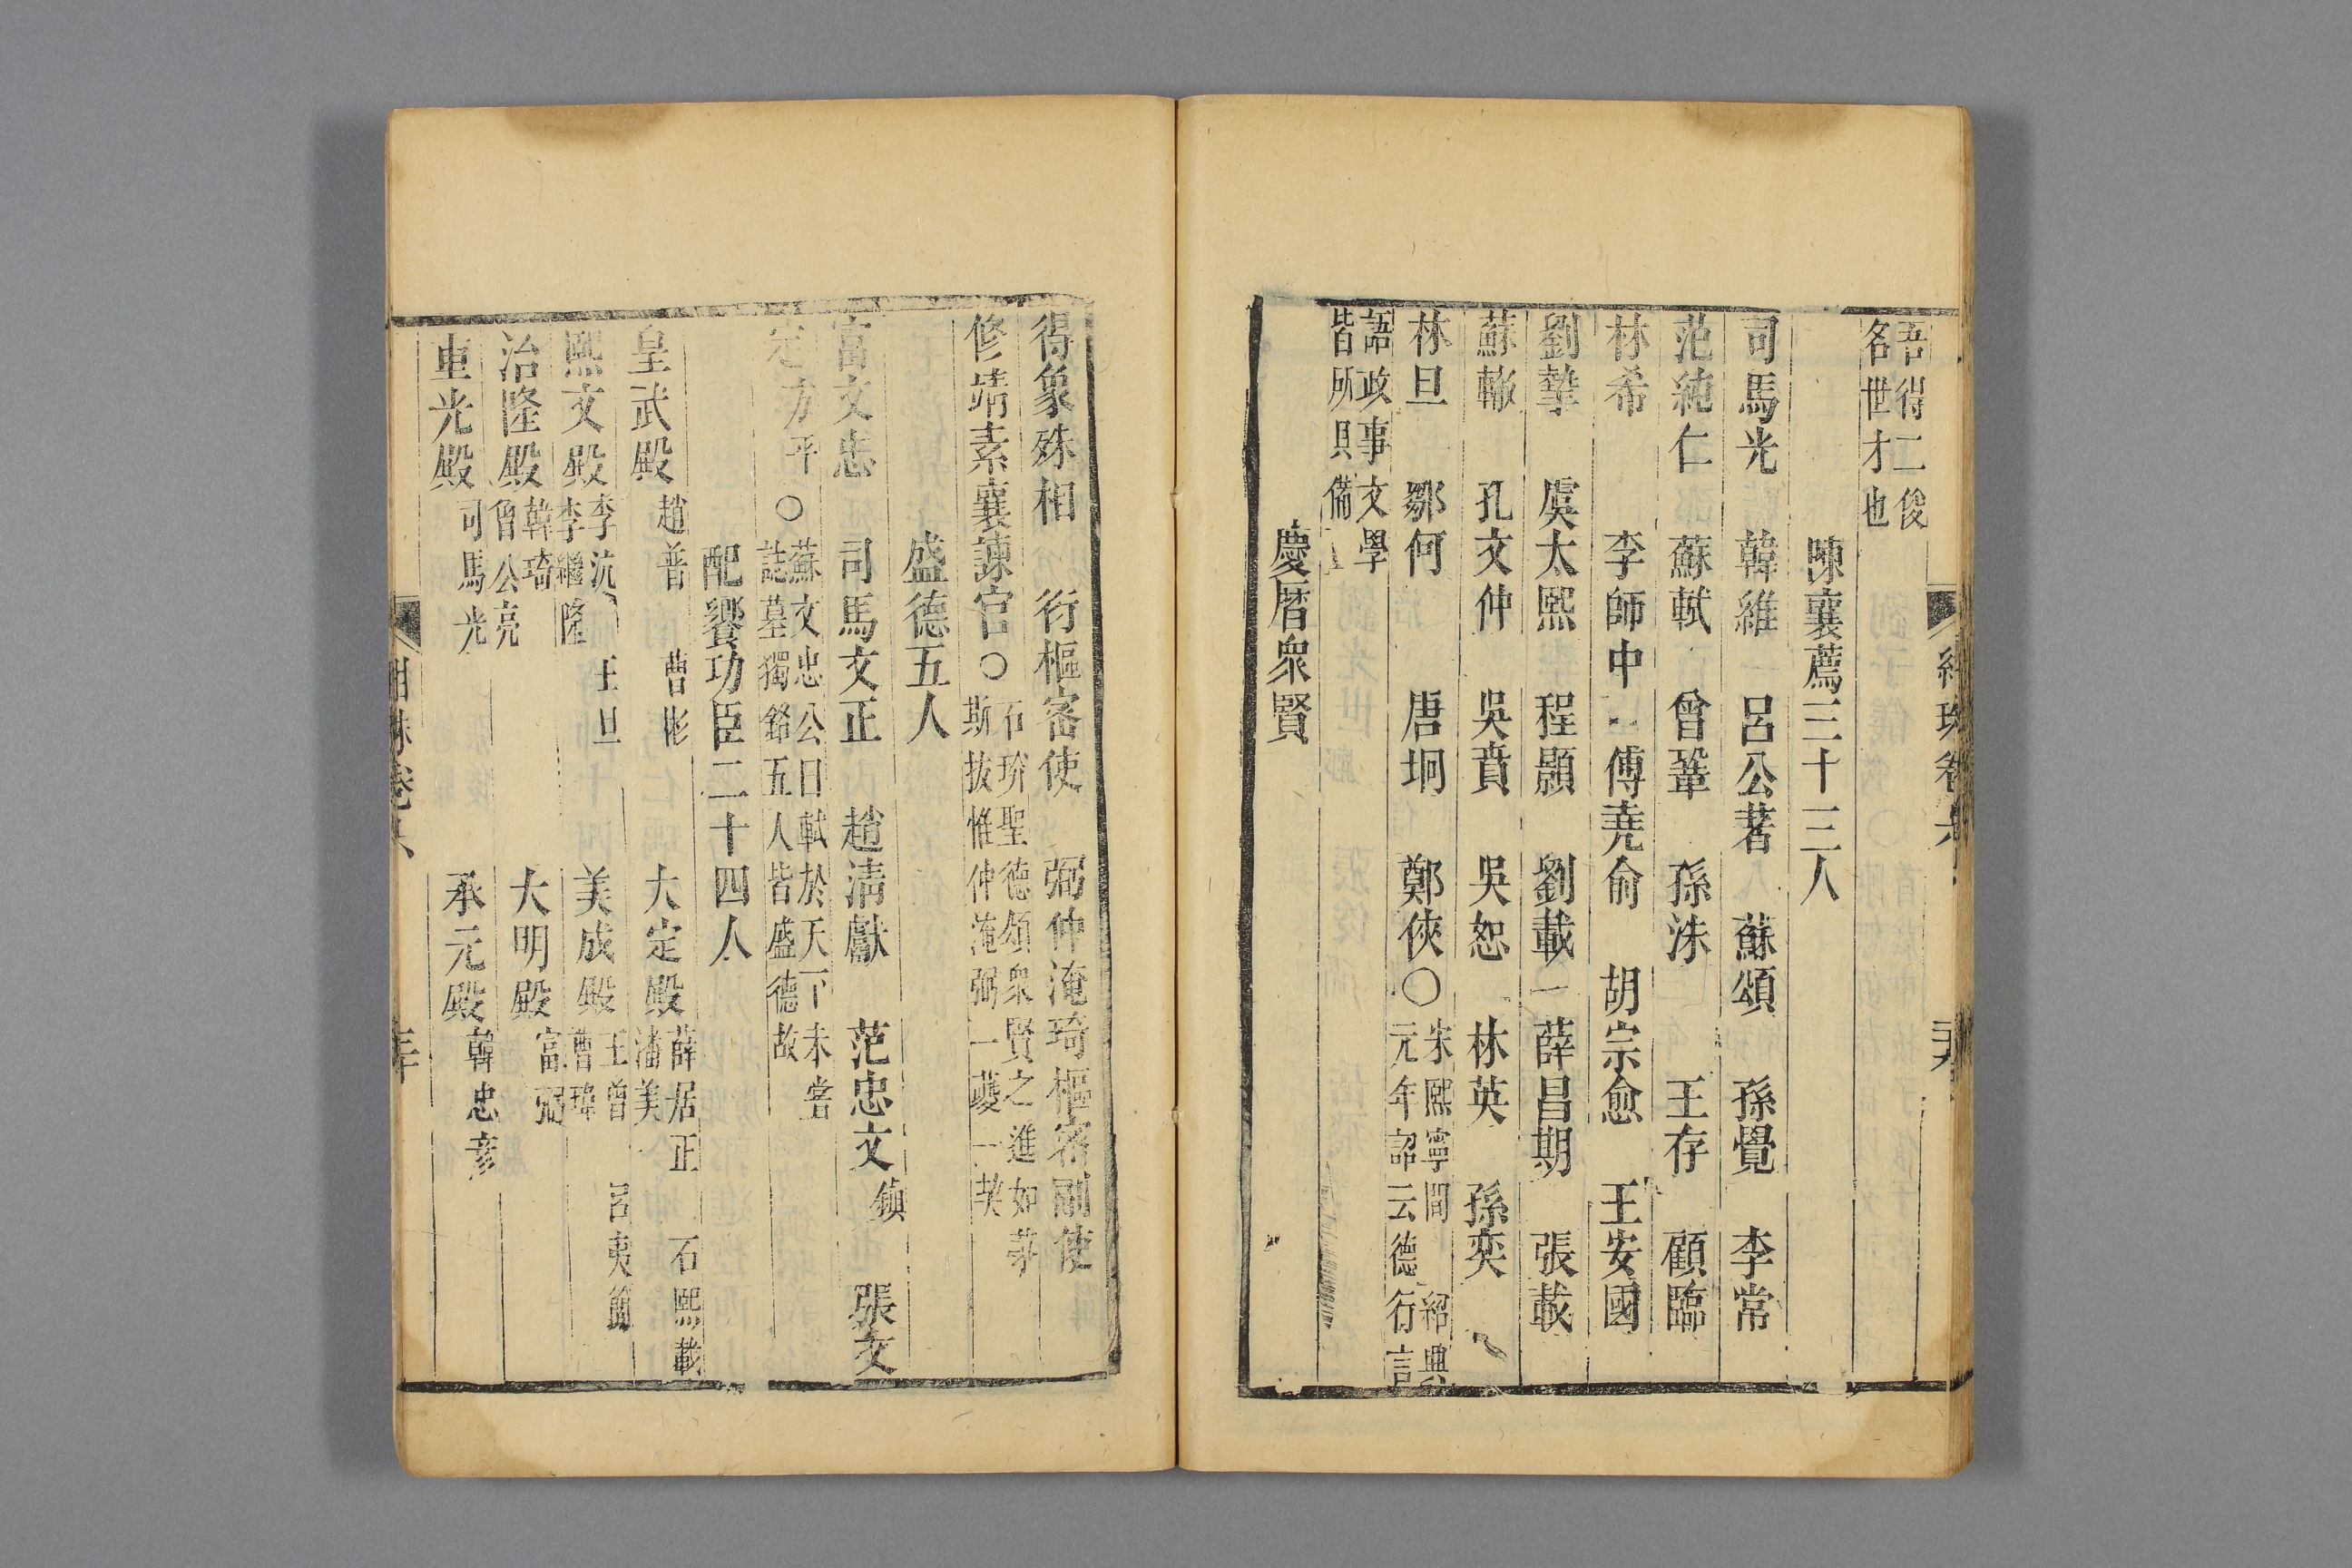 吾得二俊
各世才也
陳襄薦三十三人
司馬光　韓維　呂公著　蘇頌　孫覺　李常
范純仁　蘇軾　曾鞏　孫洙　王存　顧臨
林希　李師中　傅堯俞　胡宗愈　王安國
劉摯　虞太熙　程顥　劉載　薛昌期　張載
蘇轍　孔文仲　吳賁　吳恕　林英　孫奕
林旦　鄒何　唐坰　鄭俠〇宋熙寧間　紹興
元年詔云德行言
語政事文學
皆所具備
慶曆衆賢
得象殊相　衍樞密使　弼仲淹琦樞密副使
修靖素襄諫官〇石玠聖德頌衆賢之進如茅
斯拔惟仲淹弼一夔一契
盛德五人
富文忠　司馬文正　趙清獻　范忠文鎮　張文
定方平〇蘇文忠公曰軾於天下未嘗
誌墓獨銘五人皆盛德故
配饗功臣二十四人
皇武殿趙普　曹彬　大定殿薛居正　石熙載
潘美
熙文殿李沆　王旦
李繼隆　美成殿王曾　呂夷簡
曹瑋
治隆殿韓琦
曾公亮　大明殿富弼
重光殿司馬光　承元殿韓忠彥